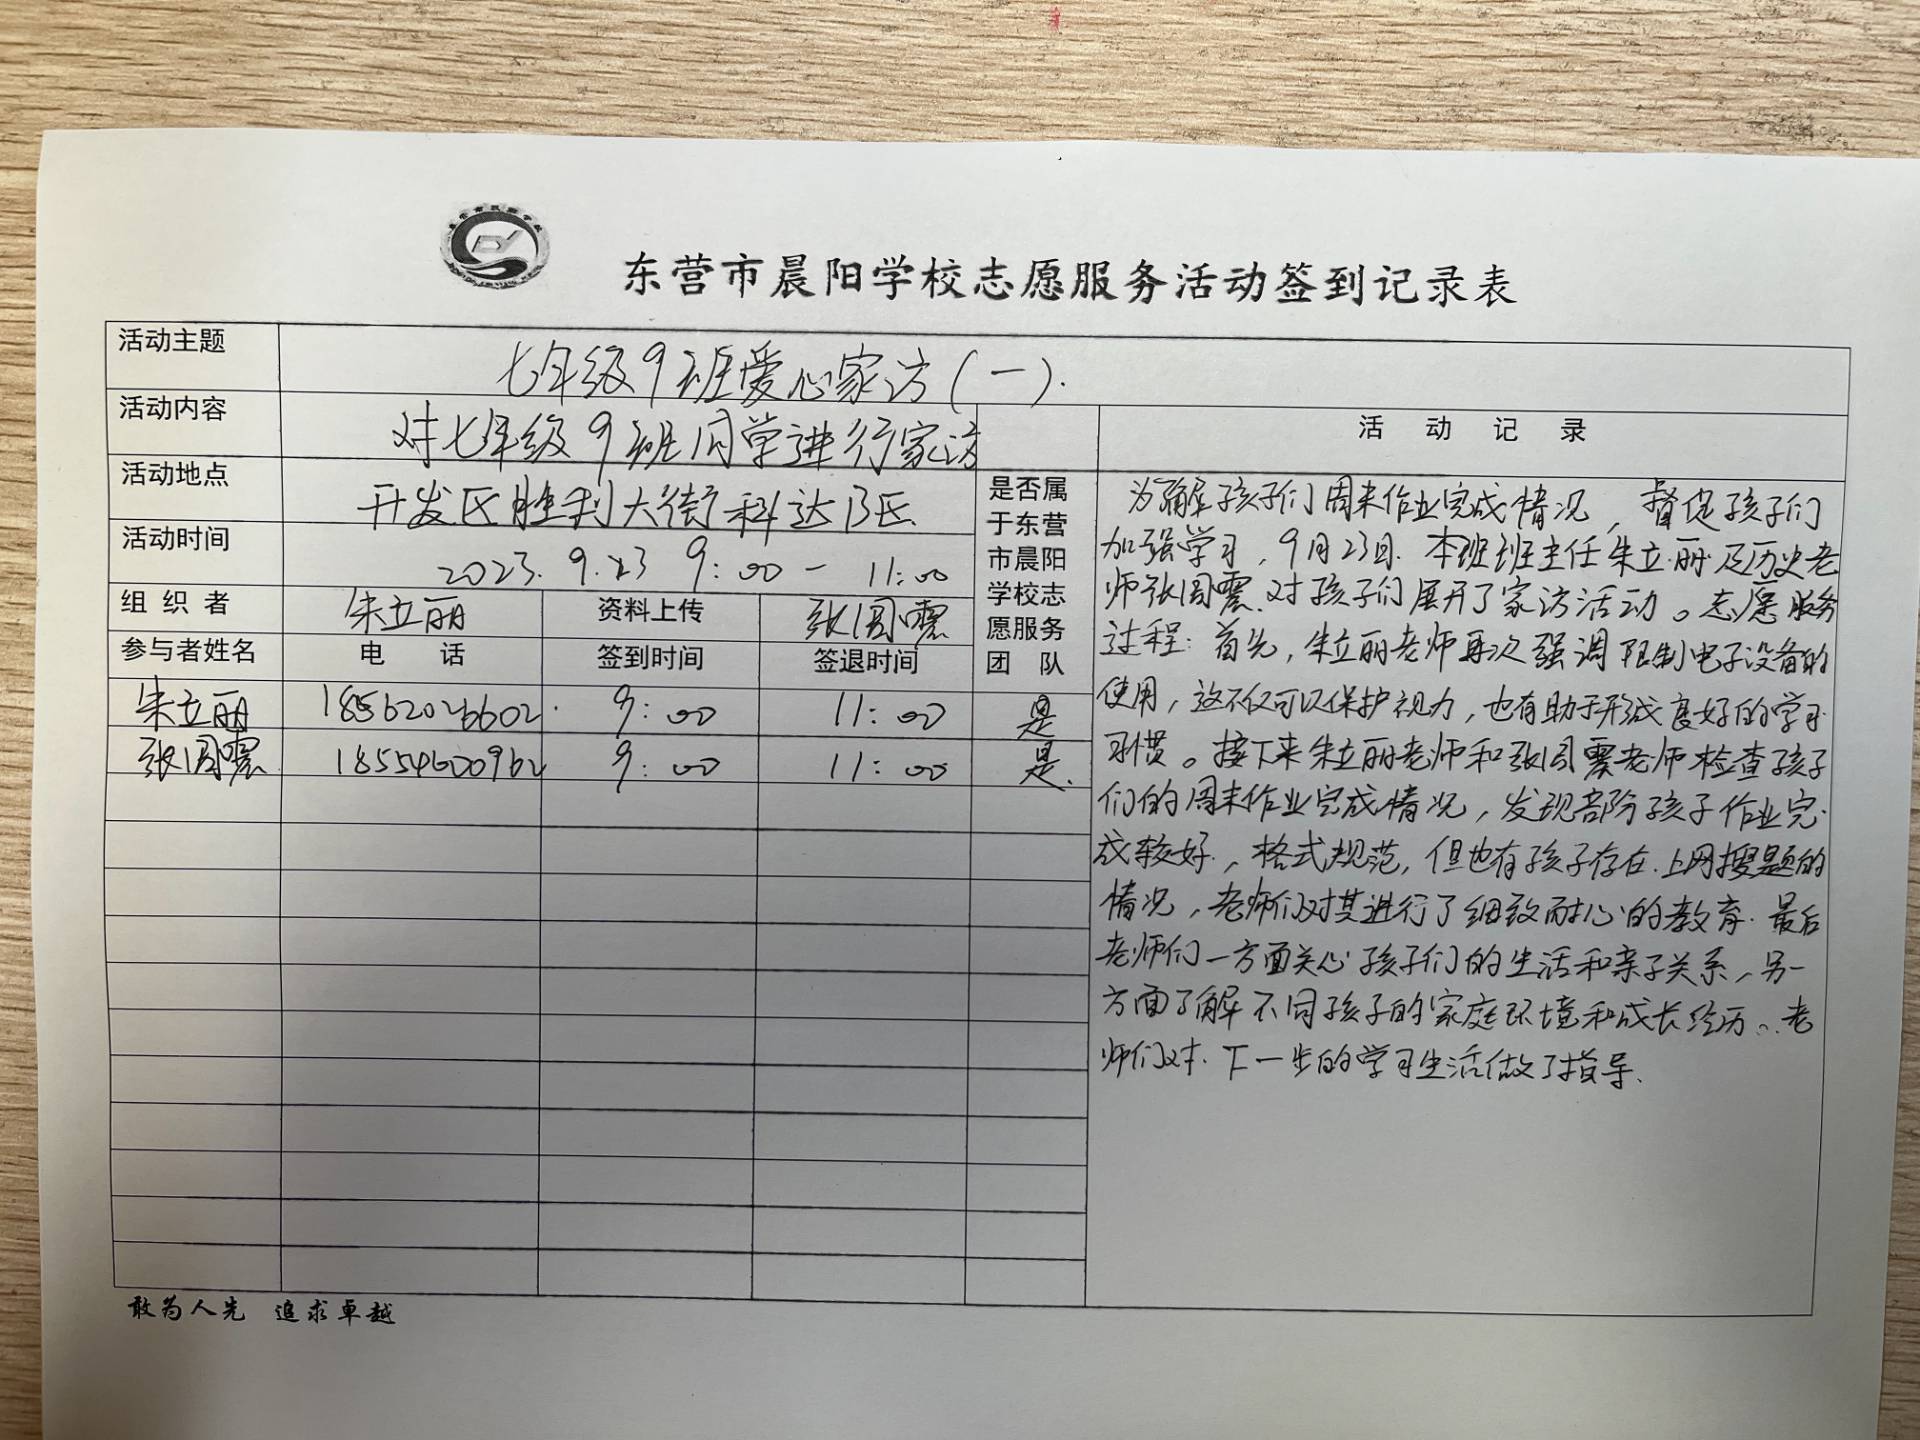 东营市晨阳学校志愿服务活动签到记录表
活动主题 七年级9班爱心家访(一).
活动内容 对七年级9班同学进行家访
活动地点 开发区胜利大街科达B区
活动时间 2023.9.23 9:00-11:00
组织者 朱立丽 资料上传
参与者姓名 电话 签到时间 签退时间
是否属
于东营
市晨阳
学校志
愿服务
团队
朱立丽 18562026602 9:00 11:00 是
18554600962 9:00 11:00 是.
活动记录
为了解孩子们周末作业完成情况,督促孩子们
加强学习,9月23日.本班班主任朱立丽及历史老
师 对孩子们展开了家访活动。志愿服务
过程:首先,朱立丽老师再次强调限制电子设备的
使用,这不仅可以保护视力,也有助于形成良好的学习
习惯。接下来朱立丽老师和 老师检查孩子
们的周末作业完成情况,发现部分孩子作业完
成较好,格式规范,但也有孩子存在上网搜题的
情况,老师们对其进行了细致耐心的教育.最后
老师们一方面关心孩子们的生活和亲子关系,另一
方面了解不同孩子的家庭环境和成长经历。老
师们对下一步的学习生活做了指导.
敢为人先 追求卓越